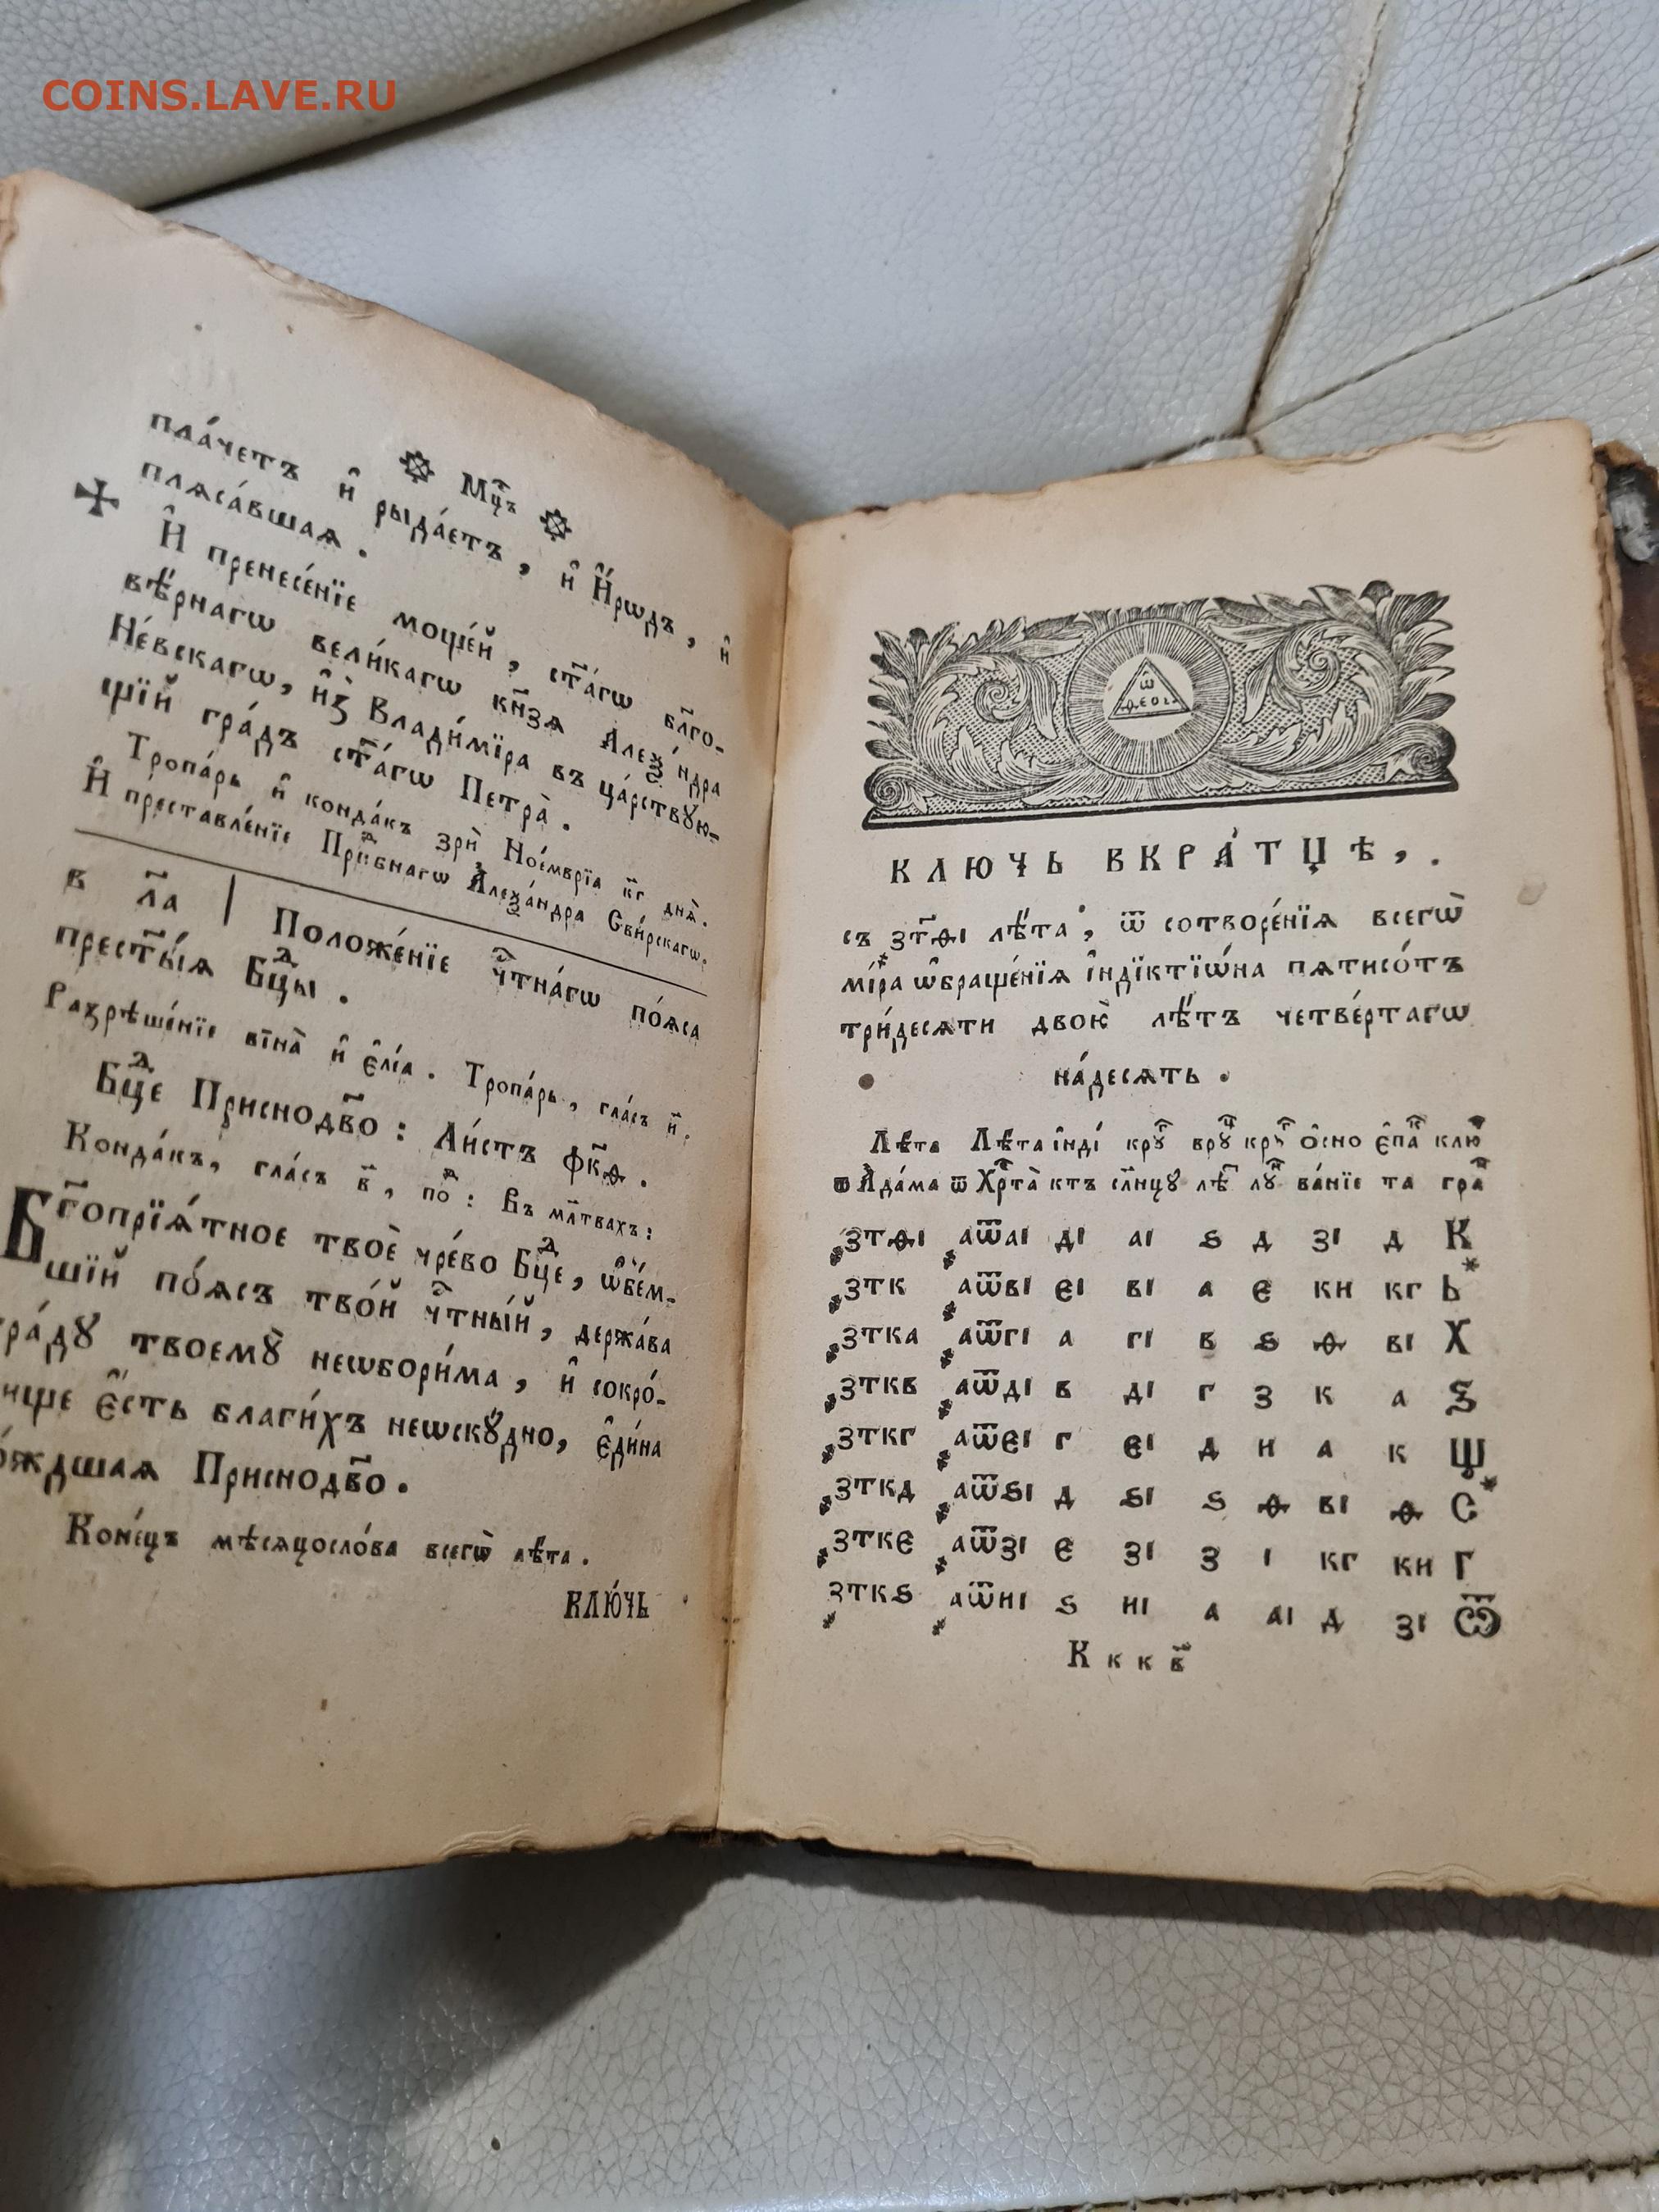 COINS.LAVE.RU
Мц҃ъ
пла́четъ и҆ рыда́етъ, и҆ И҆́рѡдъ, и҆
плѧса́вшаѧ.
И҆ пренесе́нїе моще́й, ст҃а́гѡ бл҃го-
вѣ́рнагѡ вели́кагѡ кн҃зѧ Алеѯ́ндра
Не́вскагѡ, и҆з̾ Влади́мїра въ ца́рствꙋю-
щїй гра́дъ ст҃а́гѡ Петра̀.
Тропа́рь и҆ конда́къ зрѝ Ное́мврїа к҃г днѧ̀.
И҆ преставле́нїе Прⷣбнагѡ А҆леѯа́ндра Сви́рскагѡ.
в л҃а Положе́нїе чⷭ҇тна́гѡ по́ѧса
прест҃ы́ѧ Бцⷣы.
Разрѣше́нїе вїна̀ и҆ є҆ле́а. Тропа́рь, гла́съ и҃.
Бцⷣе Приснодв҃о: Ли́стъ фк҃ѳ.
Конда́къ, гла́съ в҃, поⷣ: Въ мл҃твахъ:
Бг҃опрїѧ́тное твоѐ чре́во Бцⷣе, ѡ҆б̾е́м-
шїй по́ѧсъ тво́й чⷭ҇тны́й, держа́ва
гра́дꙋ твоемꙋ̀ неѡбори́ма, и҆ сокро́-
ище є҆́сть благи́хъ неѡскꙋ́дно, є҆ди́на
ро́ждшаѧ Приснодв҃о.
Коне́цъ мѣсѧцосло́ва всегѡ̀ лѣ́та.
КЛЮ́ЧЬ
Ѡ҆ ѲЕОС
КЛЮЧЬ ВКРА́ТЦѢ,.
съ ҂зт҃ѳі лѣ́та, ѿ сотворе́нїѧ всегѡ̀
мі́ра ѡ҆браще́нїѧ і҆ндїктїѡ́на пѧтисо́тъ
три́десѧти двою̀ лѣ́тъ четве́ртагѡ
на́десѧть.
Лѣта Лѣ́та і҆нді́ крꙋⷢ врꙋⷰ крꙋⷢ о҆сно є҆паⷦ клю
ѿ А҆да́ма ѿ Хрⷭ҇та̀ ктъ сл҃нцꙋ лѣⷮ лꙋⷩ ва́нїе та граⷩ
҂зтѳі ҂аѿаі ді аі ѕ д зі д К
҂зтк ҂аѿві єі ві а є кн кг Ь*
҂зтка ҂аѿгі а гі в ѕ ѳ ві Х
҂зткв ҂аѿді в ді г з к а Ѕ
҂зткг ҂аѿєі г єі д и а к Щ
҂зткд ҂аѿѕі д ѕі ѕ ѳ ві ѳ С*
҂зткє ҂аѿзі є зі з і кг ки Г
҂зткѕ ҂аѿиі ѕ иі а аі д зі Ѿ
К к к к в҃